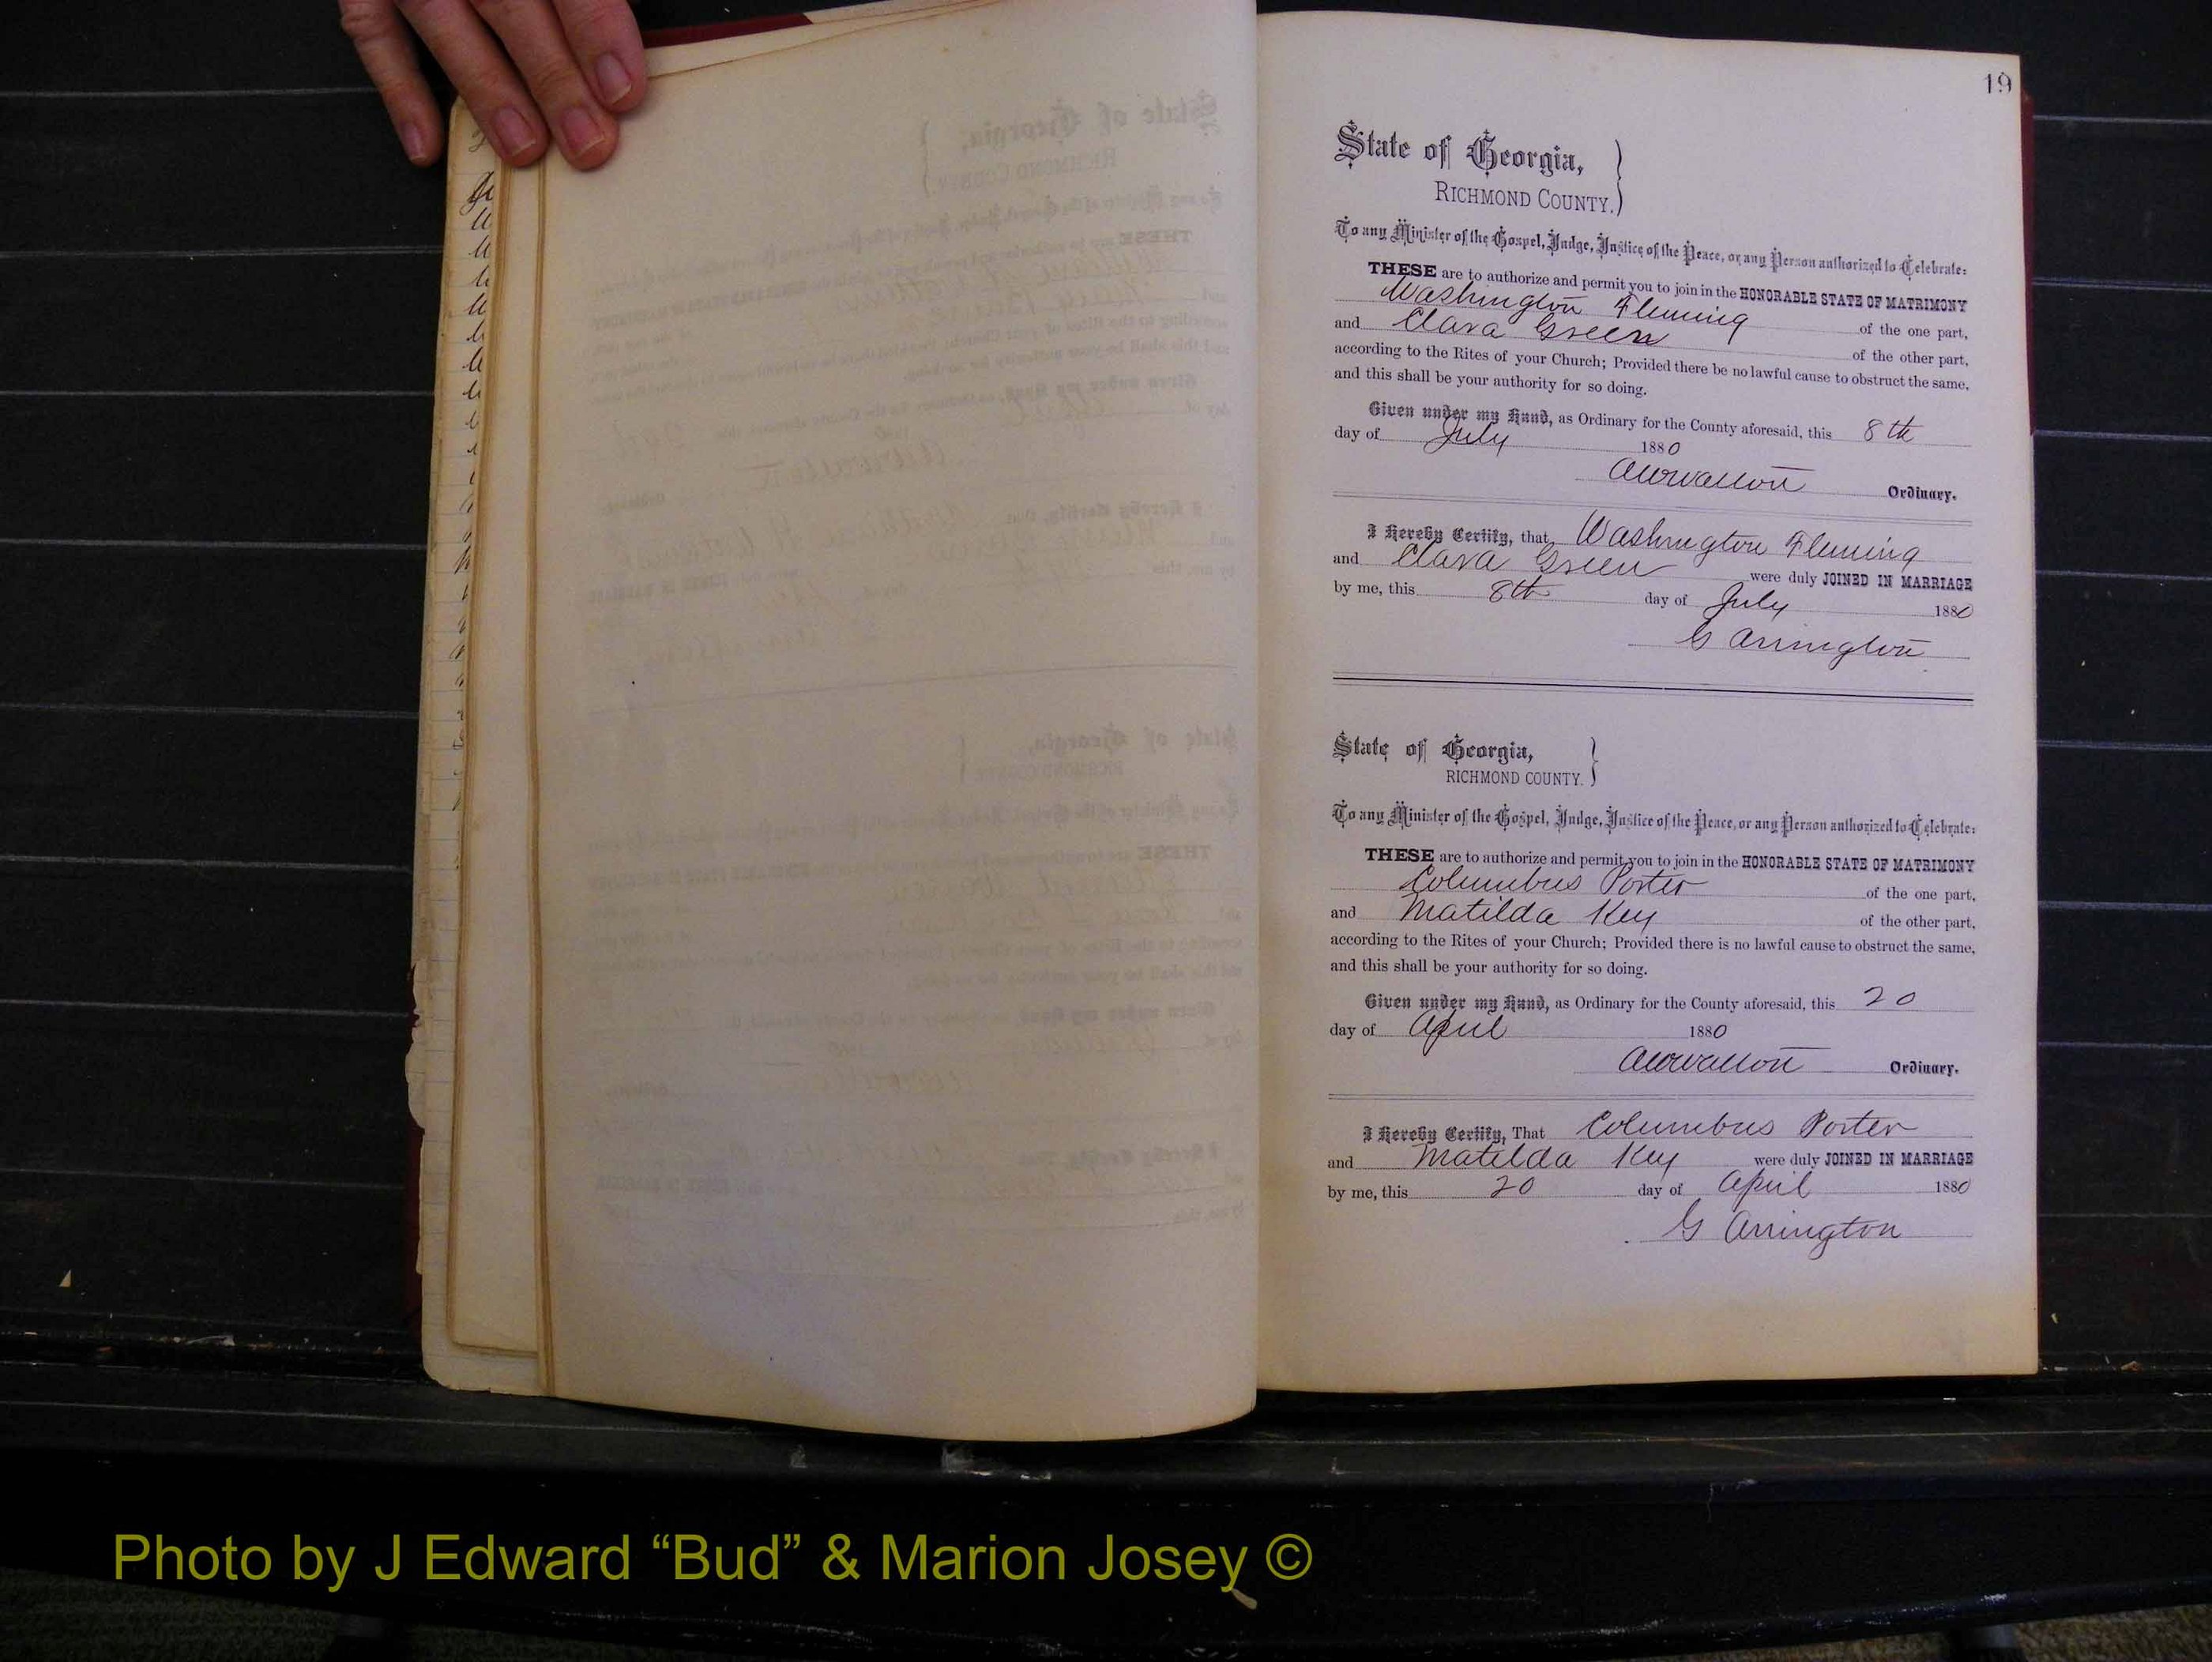 19
State of Georgia,
RICHMOND COUNTY.
To any Minister of the Gospel, Judge, Justice of the Peace, or any Person authorized to Celebrate:
THESE are to authorize and permit you to join in the HONORABLE STATE OF MATRIMONY
Washington Fleming of the one part,
and Clara Green of the other part,
according to the Rites of your Church; Provided there be no lawful cause to obstruct the same,
and this shall be your authority for so doing.
Given under my Hand, as Ordinary for the County aforesaid, this 8th
day of July 1880
Ordinary.
I Hereby Certify, that Washington Fleming
and Clara Green were duly JOINED IN MARRIAGE
by me, this 8th day of July 1880
G Arrington
State of Georgia,
RICHMOND COUNTY.
To any Minister of the Gospel, Judge, Justice of the Peace, or any Person authorized to Celebrate:
THESE are to authorize and permit you to join in the HONORABLE STATE OF MATRIMONY
Columbus Porter of the one part,
and Matilda Key of the other part,
according to the Rites of your Church; Provided there is no lawful cause to obstruct the same,
and this shall be your authority for so doing.
Given under my Hand, as Ordinary for the County aforesaid, this 20
day of April 1880
Ordinary.
I Hereby Certify, That Columbus Porter
and Matilda Key were duly JOINED IN MARRIAGE
by me, this 20 day of April 1880
G Arrington
Photo by J Edward “Bud” & Marion Josey ©